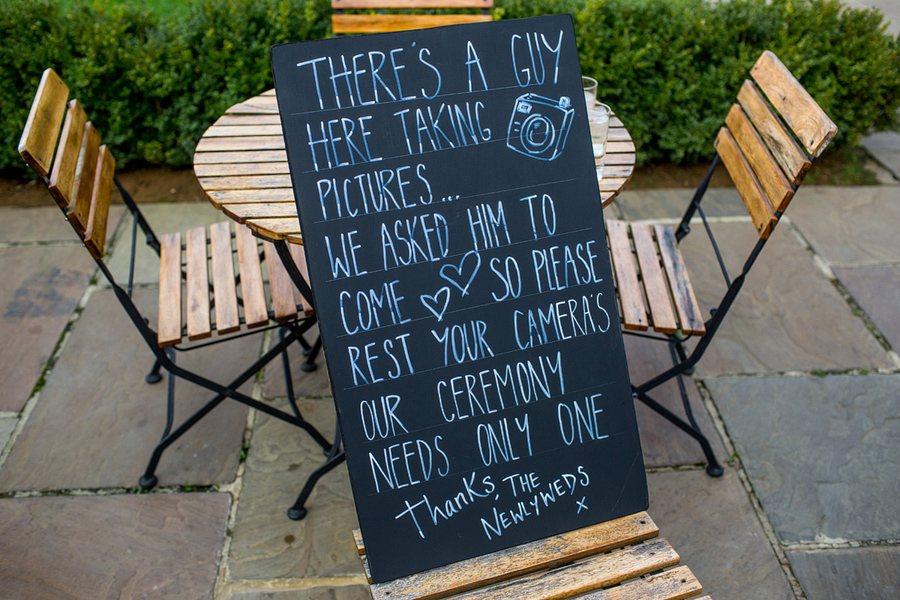 THERE'S A GUY
HERE TAKING
PICTURES...
WE ASKED HIM TO
COME SO PLEASE
REST YOUR CAMERA'S
OUR CEREMONY
NEEDS ONLY ONE
Thanks, THE
NEWLYWEDS
x